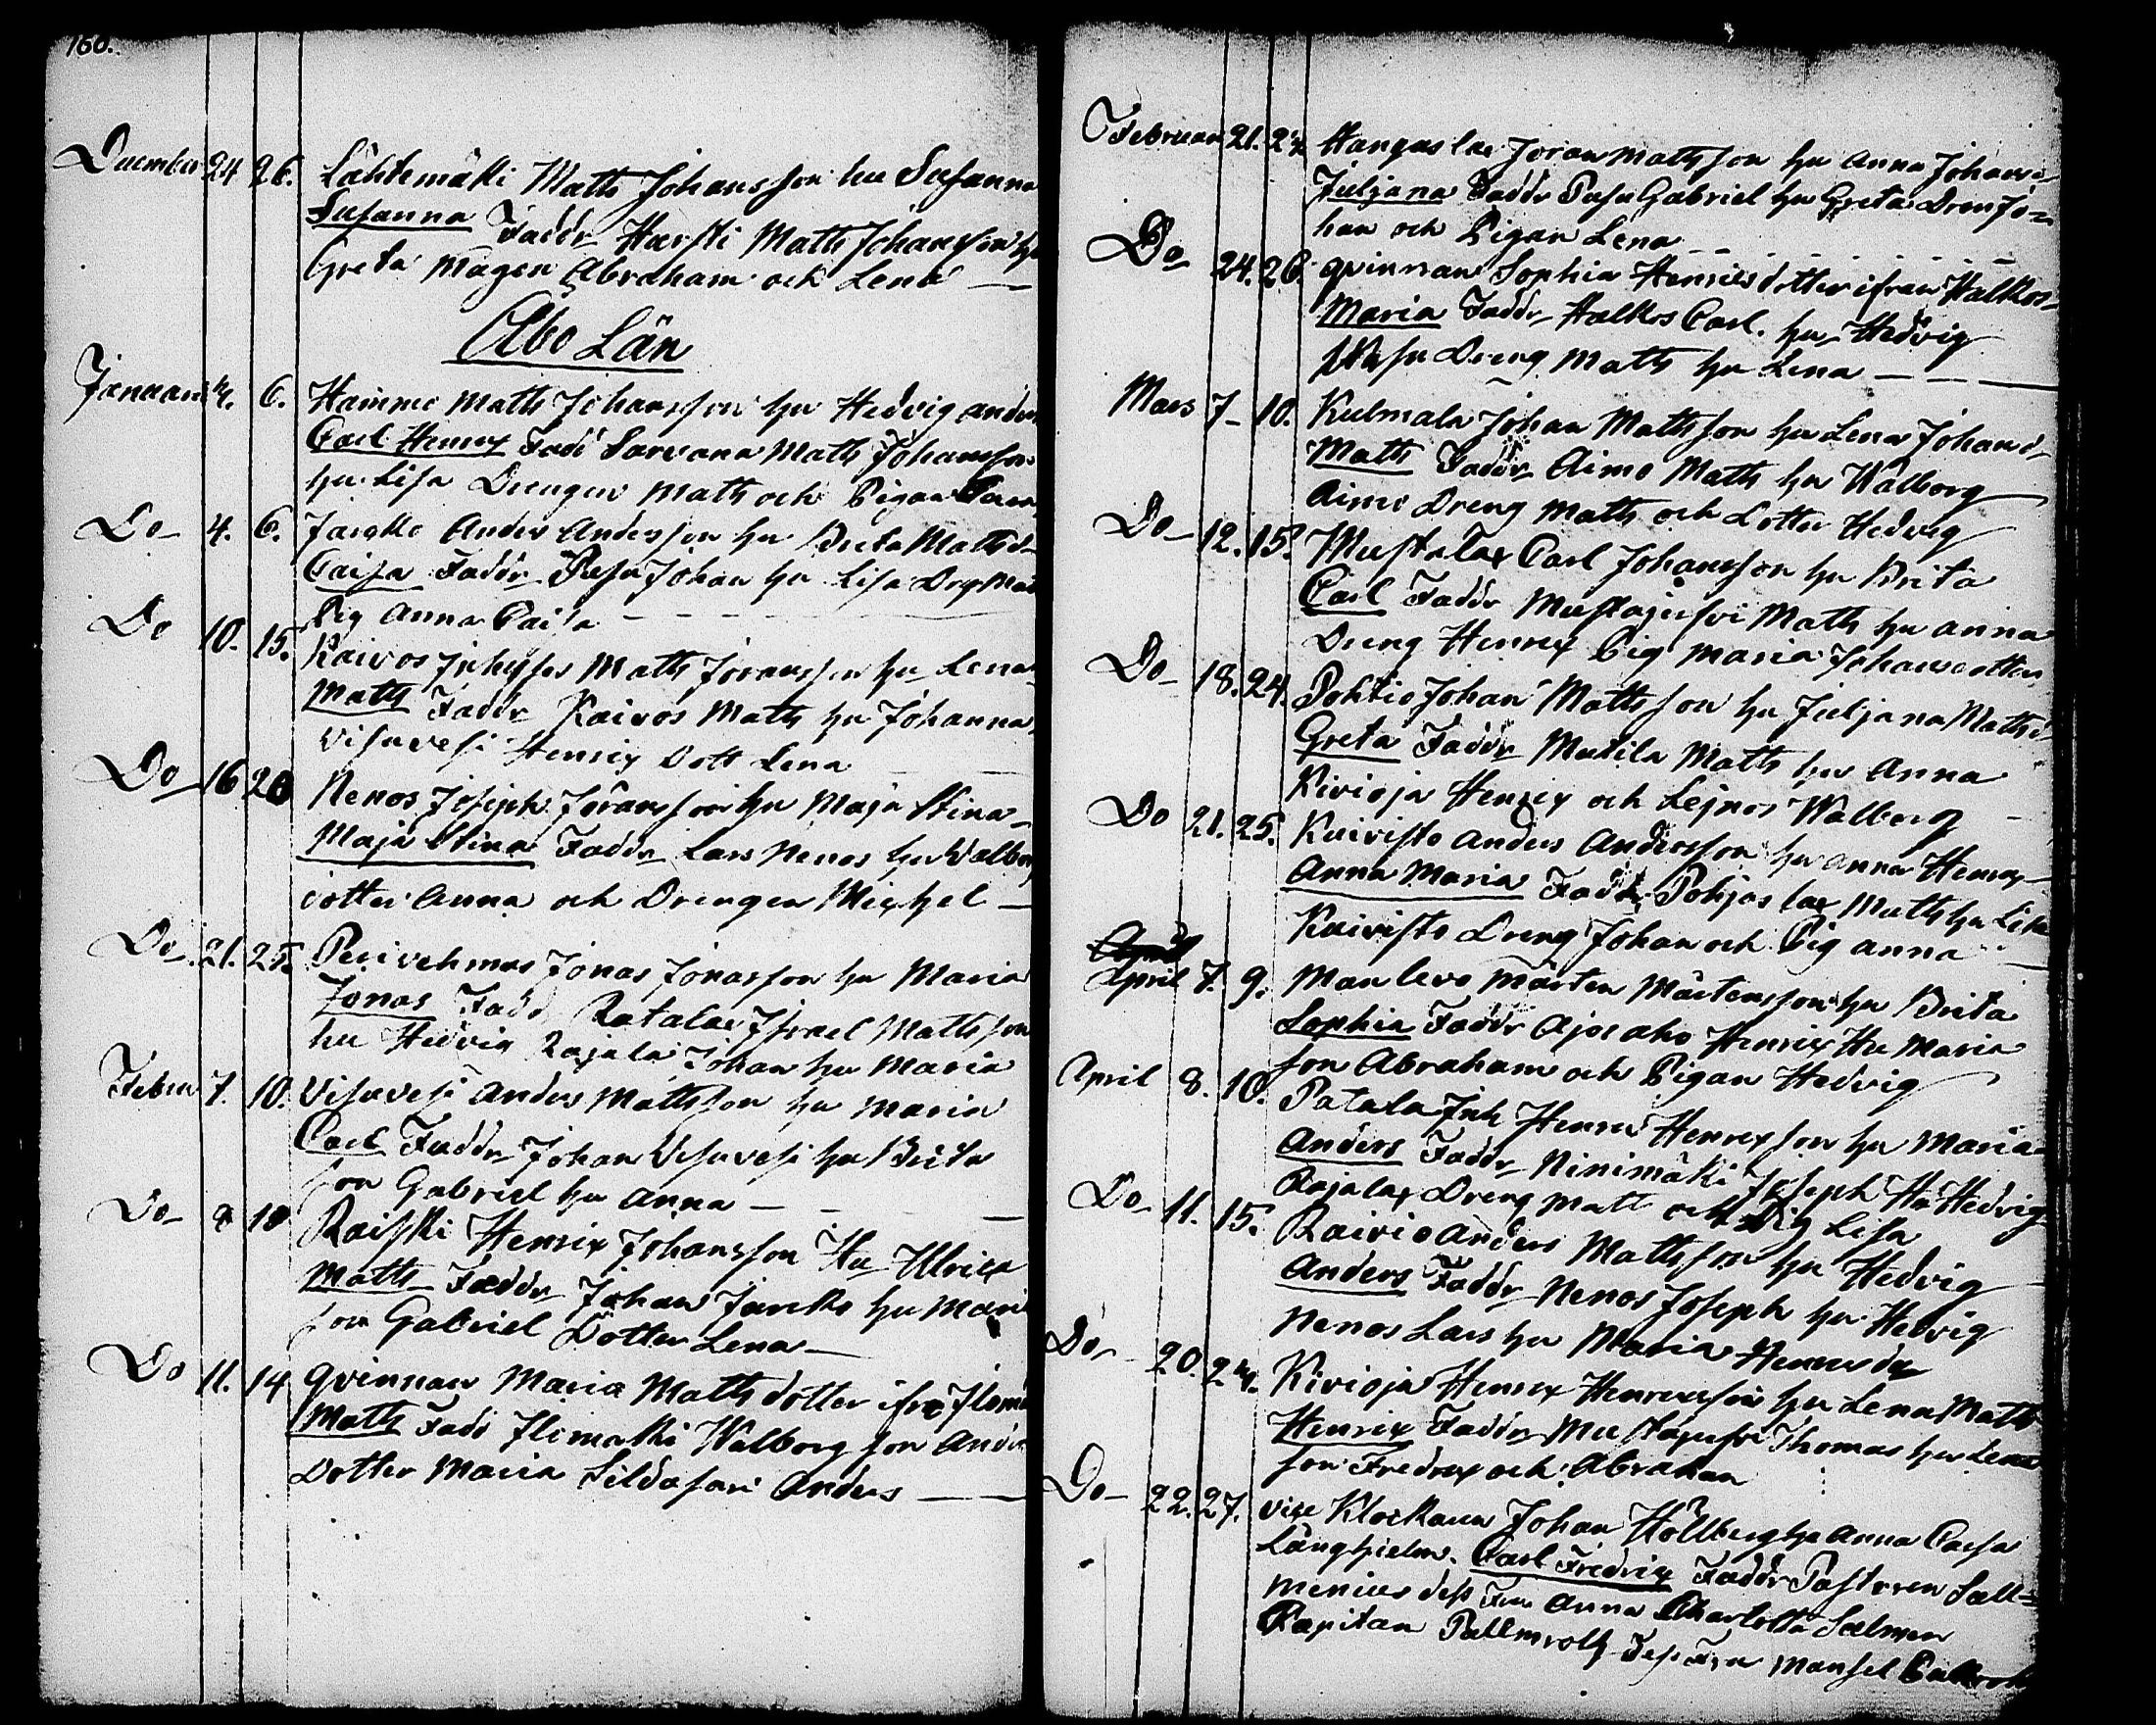 160.
December 24 26. Lähtemäki Matts Johansson hu Susanna
Susanna Faddr Harski Matts Johansson hu
Greta Mågen Abraham och Lena
Åbo Län
Januari 4. 6. Haimme Matts Johansson hu Hedvig anders
Carl Henrex Fadd Sarvana Matts Johansson
hu Lisa Drengen Matts och Pigan
Do 4. 6. Jareko Anders Andersson hu Brita Mattsd
Caisa Faddr Pusu Johan hu Lisa Drg Mat
Pig Anna Caisa
Do 10. 15. Raivos Inhyses Matts Joransson hu Lena
Matts Faddr Kaivos Matts hu Johanna
Visuvesi Henrix Dott Lena
Do 16 20 Nenos Joseph Joransson hu Maja Stina
Maja Stina Faddr Lars Nenos hu Walborg
dotter Anna och Drengen Michel
Do 21. 25. Perivehmas Jonas Jonasson hu Maria
Jonas Fadd Ratalax Israel Mattsson
hu Hedvig Rajala Johan hu Maria
Febru 7. 10. Visuvesi Anders Mattsson hu Maria
Carl Faddr Johan Visuvesi hu Brita
son Gabriel hu Anna
Do 8 10 Raiski Henrix Johansson Hu Ulrica
Matts Faddr Johan Jareko hu Mari
son Gabriel Dotter Lena
Do 11. 14 qvinnan Maria Mattsdotter ifra
Matts Fadd Ilimakki Walborg son Ander
Dotter Maria Sildasari Anders
Februari 21. 24 Kangas lax Joran Mattsson hu Anna Johansd
Juljana Faddr Pusu Gabriel hu Greta Dren Jo=
han och Pigan Lena
Do 24. 26. qvinnan Sophia Henrics dotter ifran Walkos
Maria Faddr Halkos Carl. hu Hedvig
Pusu Dreng Matts hu Lena
Mars 7 10. Kulmala Johan Mattsson hu Lena Johansd
Matts Faddr Aimo Matts hu Walborg
Aimo Dreng Matts och Dotter Hedvig
Do 12. 15. Mustalax Carl Johansson hu Brita
Carl Faddr Mustajerfvi Matts hu Anna
Dreng Henrex Pig Maria Johansdotter
Do 18. 24. Pohtio Johan Mattsson hu Juljana Mattsd
Greta Faddr Mutila Matts hu Anna
Kivioja Henrex och Lejnos Walborg
Do 21. 25. Kuivisto Anders Andersson hu Anna Henrex
Anna Maria Faddr Pohjas lax Matts hu Lisa
Kuivisto Dreng Johan och Pig Anna
April 7. 9. Manlevo Mårten Mårtensson hu Brita
Sophia Faddr Ajos aho Henrix Hu Maria
son Abraham och Pigan Hedvig
April 8. 10. Patala Inh Henrex Henrexson hu Maria
Anders Faddr Ninimäki Joseph Hu Hedvig
Rajalax Dreng Matt och Pig Lisa
Do 11. 15. Raivio Anders Mattsson hu Hedvig
Anders Faddr Nenos Joseph hu Hedvig
Nenos Lars hu Maria Henrexdr
Do 20. 24. Kivioja Henrex Henrexson hu Lena Matts
Henrix Faddr Mustajerfvi Thomas hu Lena
son Fredrex och Abraham
Do 22. 27. vice Klockaren Johan Höllberg hu Anna Caisa
Långhjelm. Carl Fredrix Faddr Pastoren Sall=
menius dess Fru Anna Charlotta Salmen
Kapitan Pallmroth Dess Fru Mansel Pallmroth